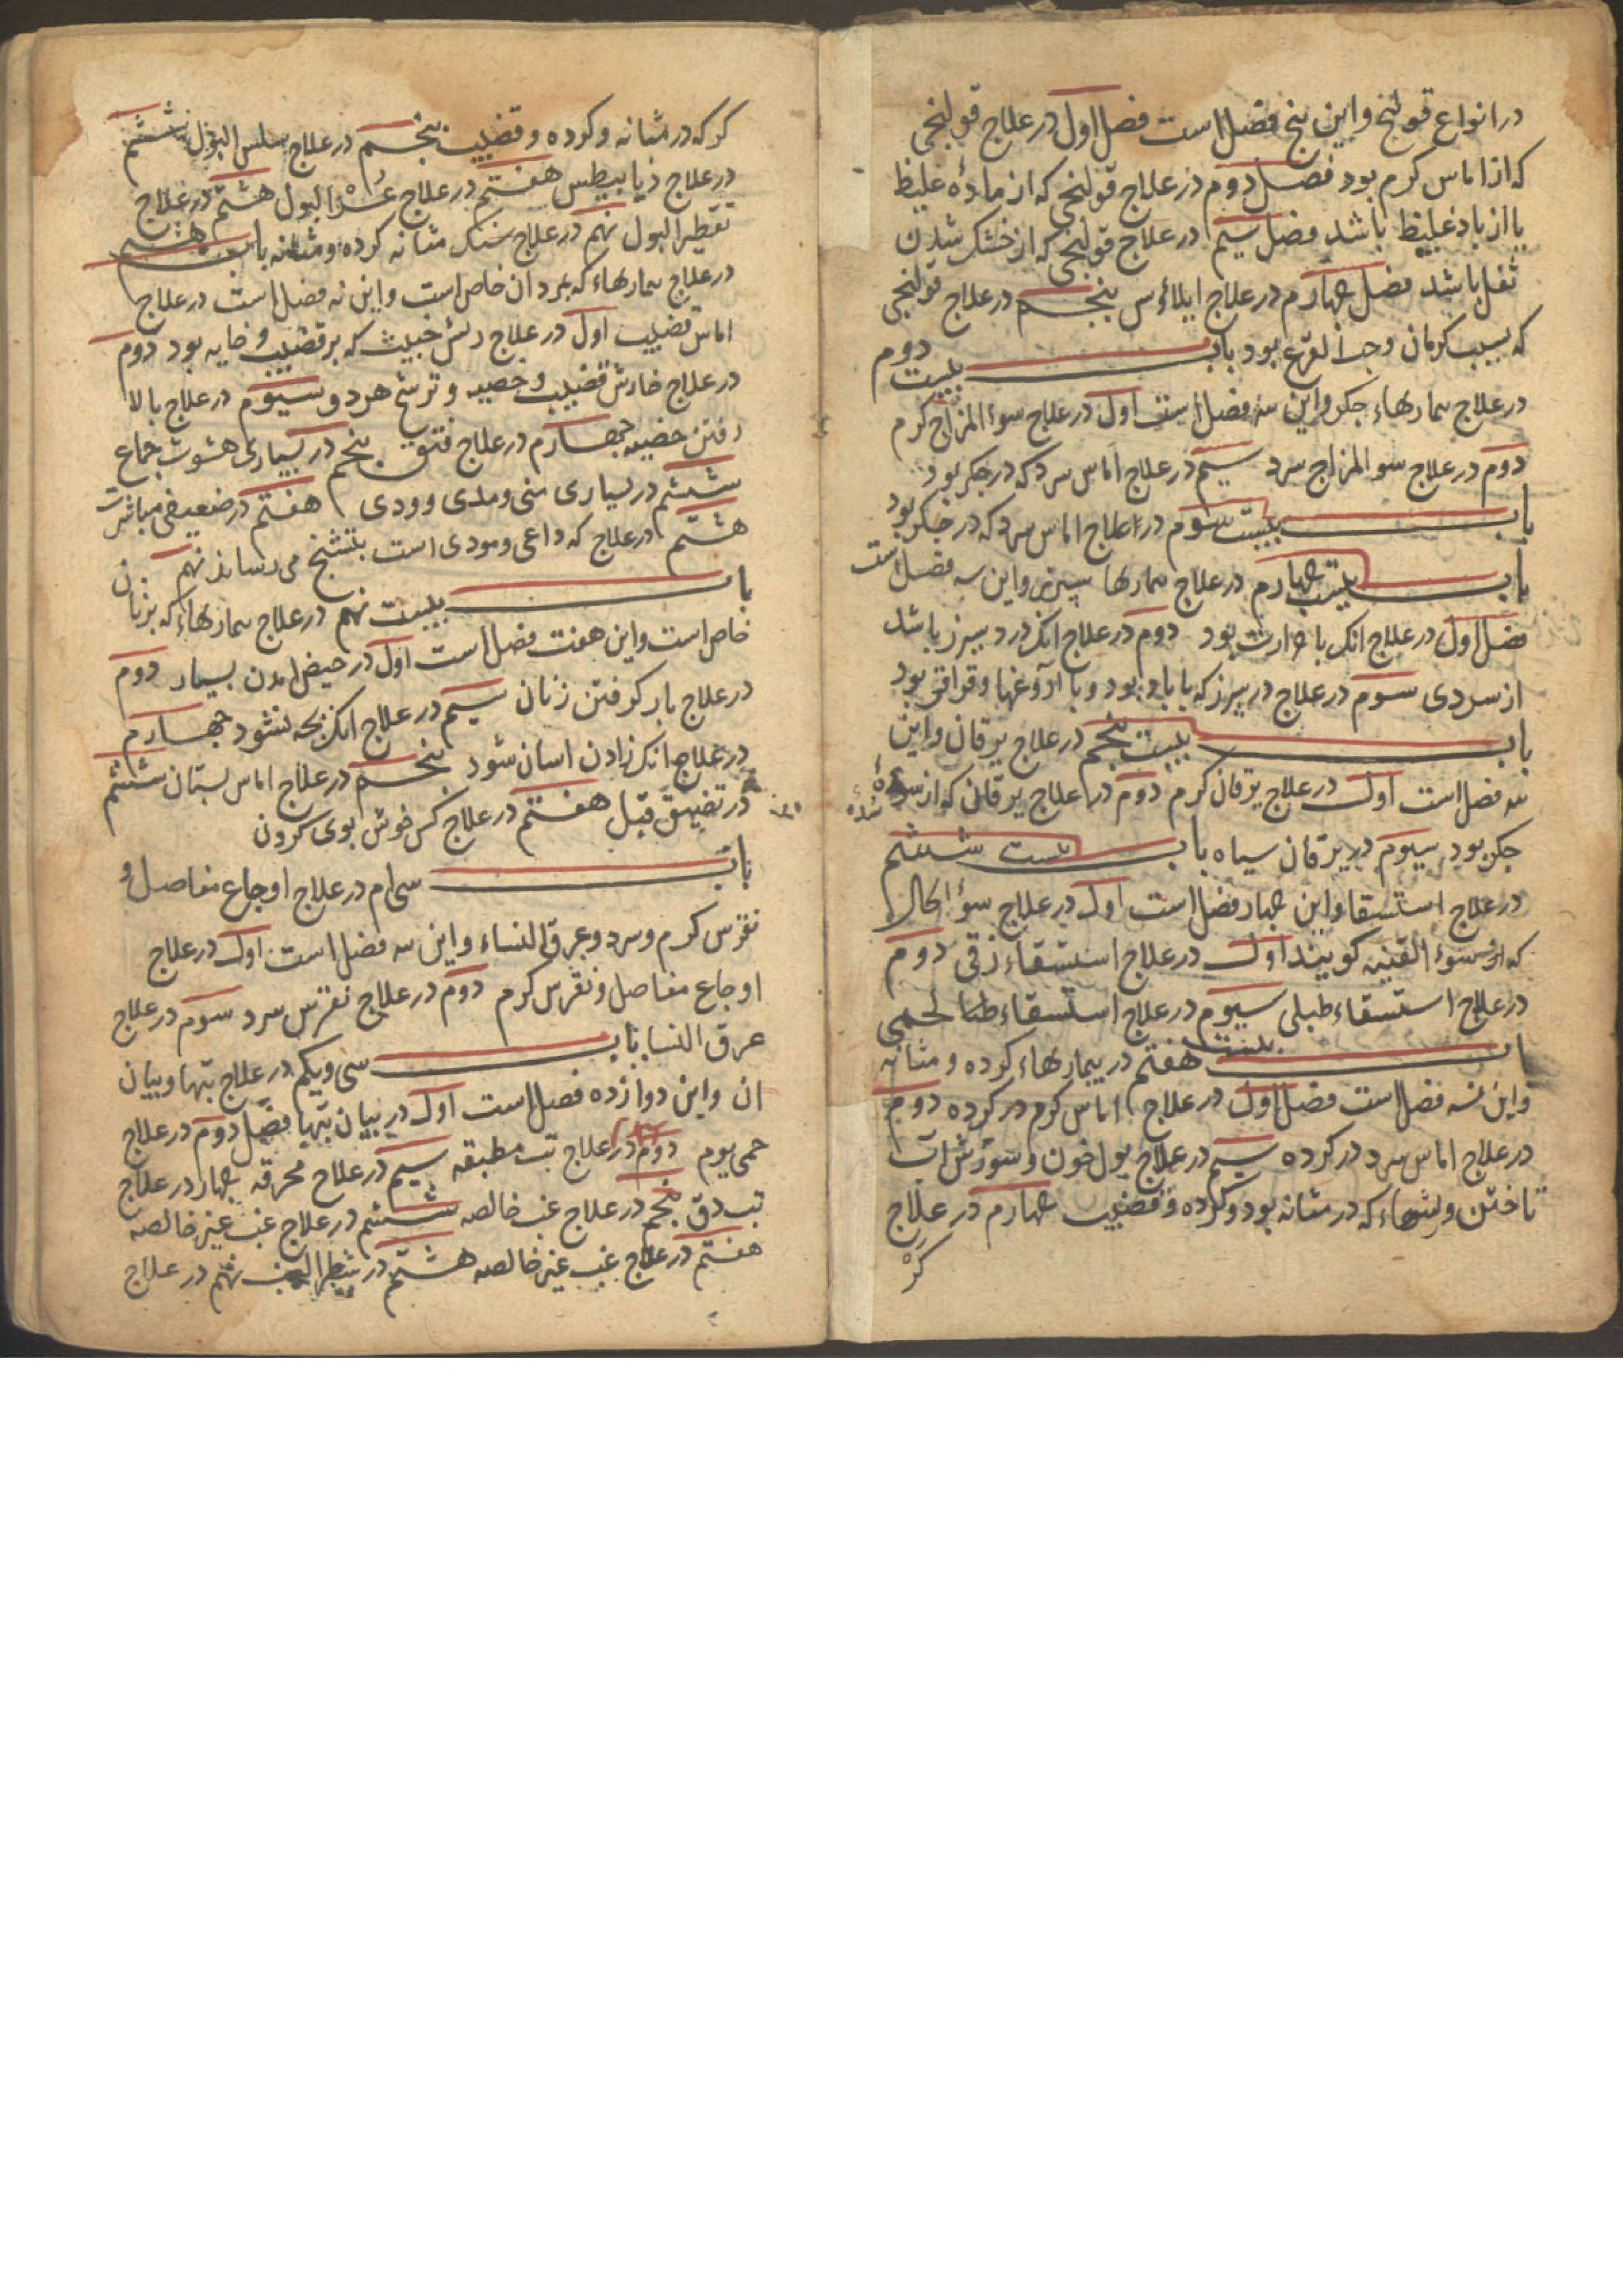 در انواع قولنج و این پنج فصل است فصل اول در علاج قولنجی
که از اماس کرم بود فصل دوم در علاج قولنجی که از مادۀ غلیظ
یا از باد غلیظ باشد فصل سیم در علاج قولنجی که از خشک شدن
ثفل باشد فصل چهارم در علاج ایلاؤس پنجم در علاج قولنجی
که بسبب کرمان وحب القرع بود باب بیست دوم
در علاج بیمارهاء جکر و این سه فصل است اول در علاج سوء المزاج کرم
دوم در علاج سو المزاج سرد سیم در علاج اماس سرد که در جکر بود
باب بیست سوم در علاج اماس سرد که در جکر بود
باب بیست چهارم در علاج بیمارها سپرز و این سه فصل است
فصل اول در علاج انک با حرارت بود دوم در علاج انک درد سپرز باشد
از سردی سوم در علاج در سپرز که با باد بود و با آروغها و قراقر بود
باب بیست پنجم در علاج یرقان و این
سه فصل است اول در علاج یرقان کرم دوم در علاج یرقان که از سدۀ
سدۀ
جکر بود سیوم در یرقان سیاه باب بیست ششم
در علاج استسقا و این چهار فصل است اول در علاج سوؤ الحال
که انرا سوء القنیه کویند اول در علاج استسقاء زقی دوم
در علاج استسقاء طبلی سیوم در علاج استسقاء لحمی
باب بیست هفتم در بیمارهاء کرده و مثانه
و این نه فصل است فصل اول در علاج اماس کرم در کرده دوم
در علاج اماس سرد در کرده سیم در علاج بول خون و سوزش آب
تاختن و ریشهاء که در مثانه بود و کرده و قضیب چهارم در علاج
کر
کر که در مثانه و کرده و قضیب پنجم در علاج سلس البول ششم
در علاج ذیابیطس هفتم در علاج عسر البول هشتم در علاج
تقطیر البول نهم در علاج سنک مثانه کرده و مثانه باب هشتم
در علاج بیمارهاء که بمردان خاص است و این نه فصل است در علاج
اماس قضیب اول در علاج ریش خبیث که بر قضیب و خایه بود دوم
در علاج خارش قضیب و خصیه و ترشح هر دو سیوم در علاج بالا
رفتن خصیه چهارم در علاج فتق پنجم در بسیاری شهوت جماع
ششم در بسیاری منی و مدی و ودی هفتم در ضعیفی مباشرت
هشتم در علاج که داعی و مودی است بتشنج می رساند نهم
باب بیست نهم در علاج بیمارهاء که بزنان
خاص است و این هفت فصل است اول در حیض امدن بسیار دوم
در علاج بار کرفتن زنان سیم در علاج انک بچه نشود چهارم
در علاج انک زادن اسان شود پنجم در علاج اماس پستان ششم
در تضییق قبل هفتم در علاج کس خوش بوی کردن
باب سی ام در علاج اوجاع مفاصل و
نقرس کرم و سرد و عرق النساء و این سه فصل است اول در علاج
اوجاع مفاصل و نقرس کرم دوم در علاج نقرس سرد سوم در علاج
عرق النسا باب سی و یکم در علاج تبها و بیان
ان و این دوازده فصل است اول در بیان تبها فصل دوم در علاج
حمی یوم دوم در علاج تب مطبقه سیم در علاج محرقه چهار در علاج
تب دق پنجم در علاج غب خالصه ششم در علاج غب غیر خالصه
هفتم در علاج غب غیر خالصه هشتم در شطر الغب نهم در علاج